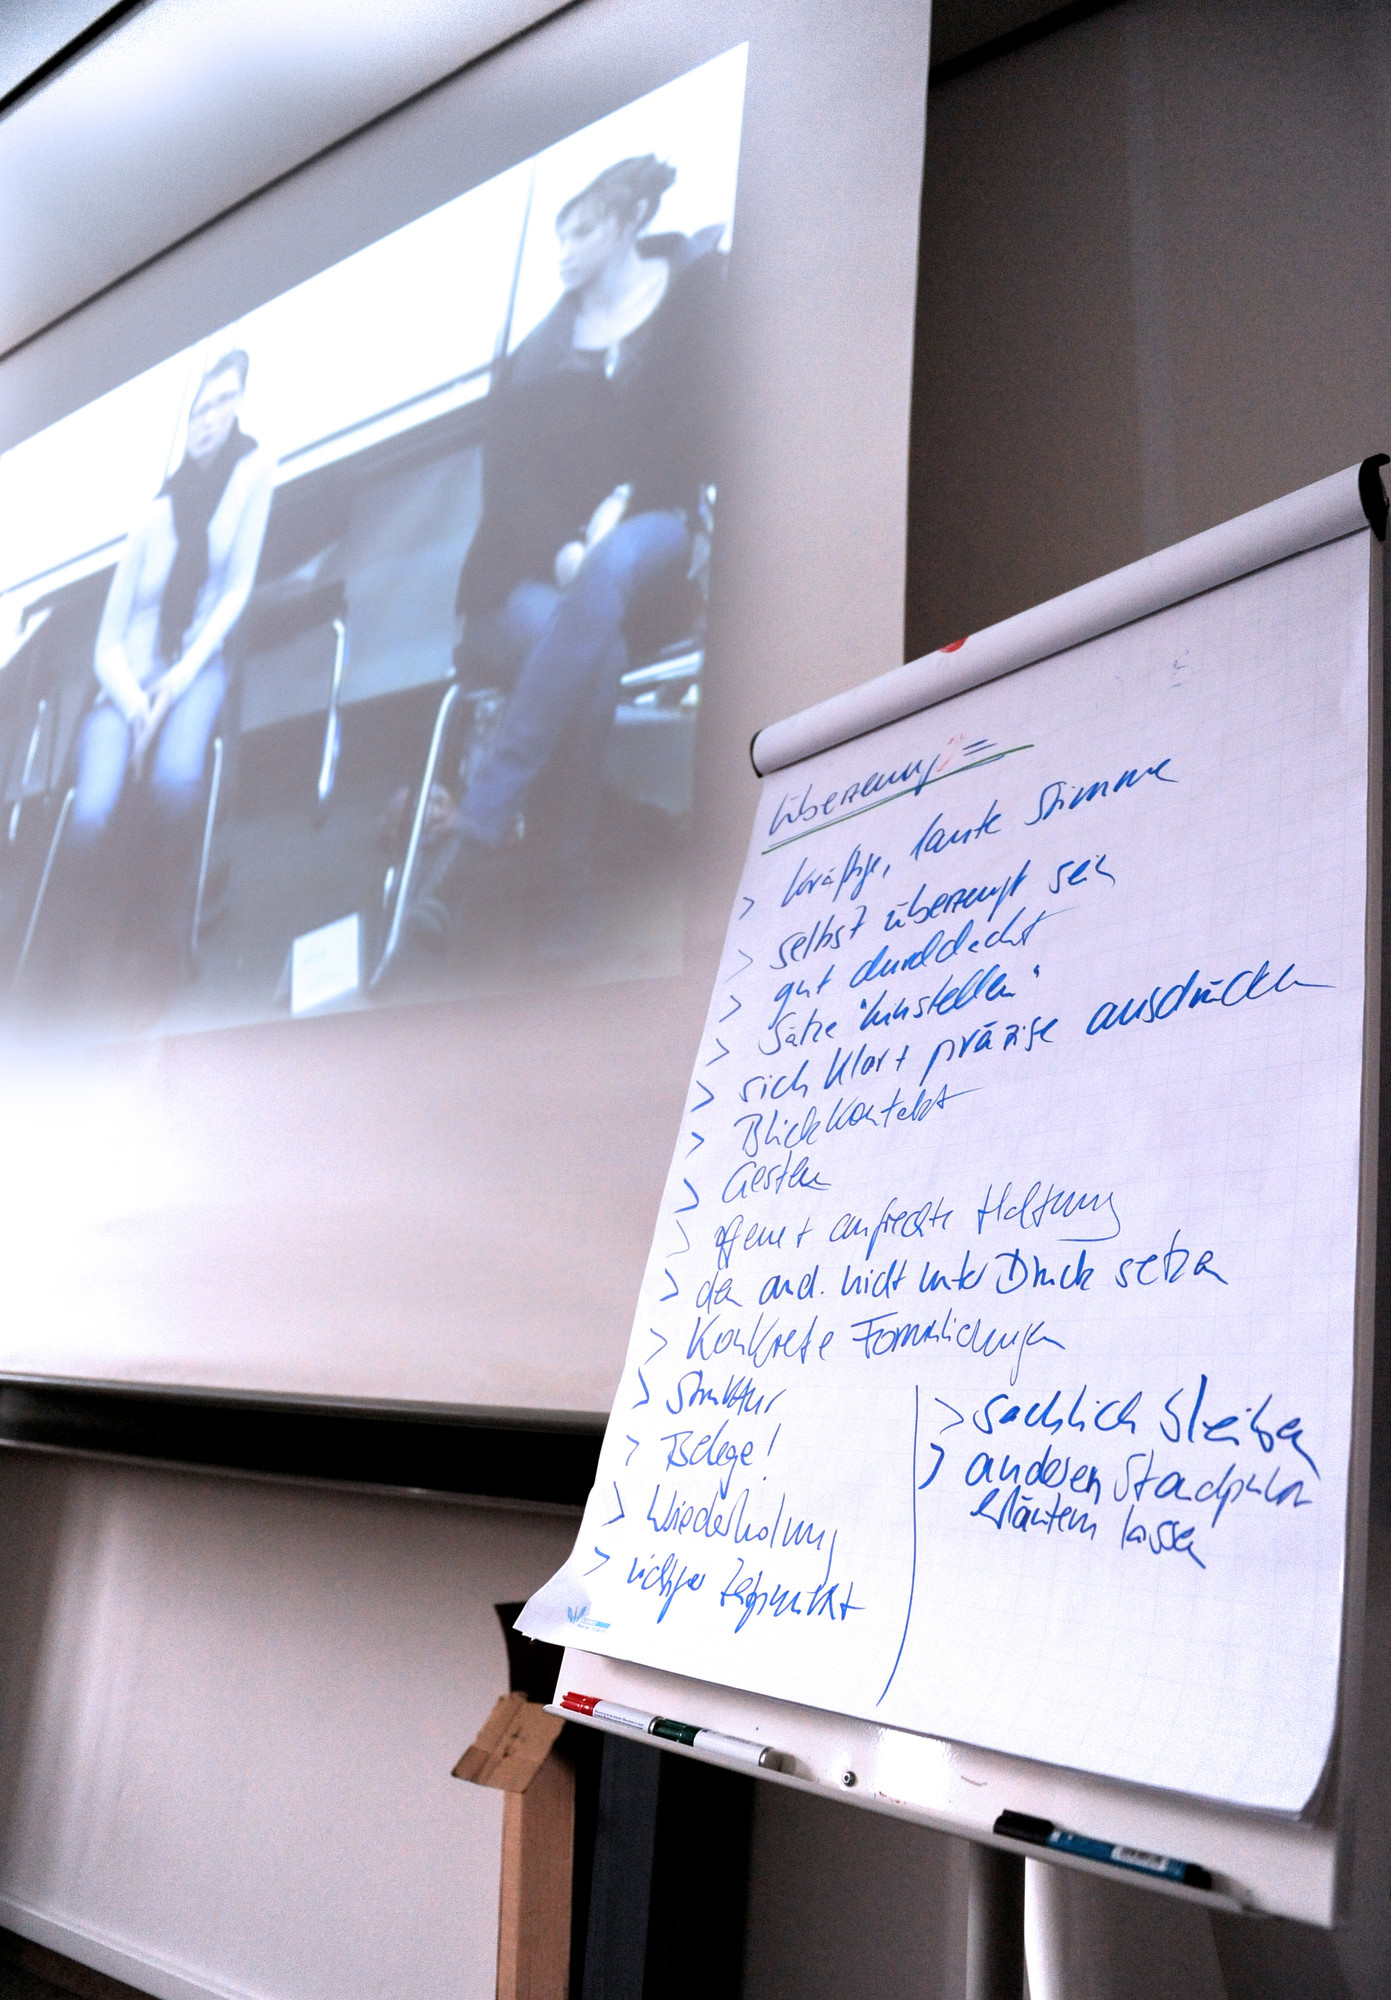 überzeung? =
> kräftige, laute Stimme
> selbst überzeugt sein
> gut durchdacht
> Sätze "hinstellen"
> sich klar + präzise ausdrücken
> Blickkontakt
> Gesten
> offene + aufrechte Haltung
> den and. nicht unter Druck setzen
> Konkrete Formulierungen
> Struktur
> Belege!
> Wiederholung
> richtiger Zeitpunkt
> sachlich bleiben
> anderen Standpunkt
erläutern lassen